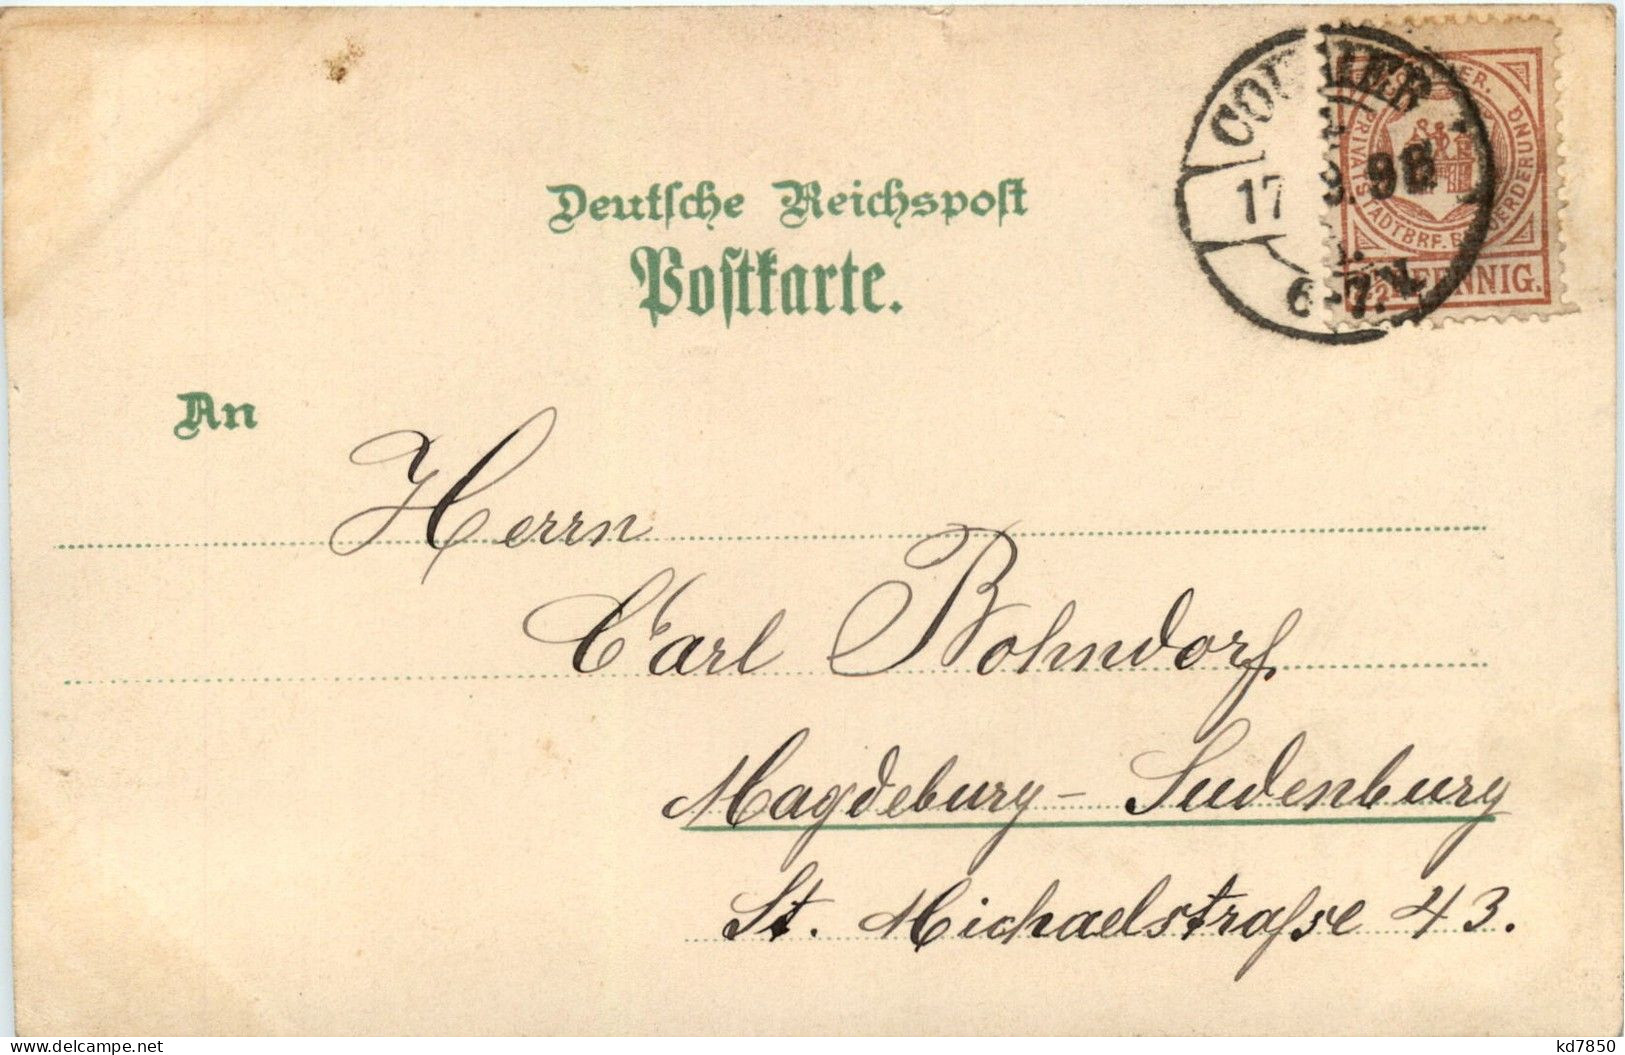 COURIER
17 9. 98
6-7. N.
COURIER.
PRIVATSTADTBRF. BEFOERDERUNG
PFENNIG.
Deutsche Reichspost
Postkarte.
An
Herrn
Carl Bohndorf
Magdeburg - Sudenburg
St. Michaelstraſse 43.
delcampe.net
kd7850